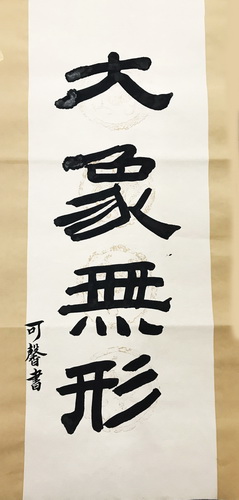 大象無形
可馨書